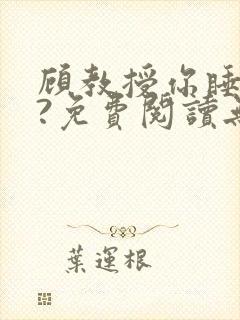 顾教授你睡
?免費閱讀
葉運根